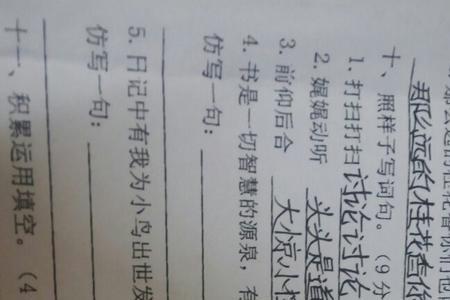 那么远的桂花香你
十、照样子写词句。(9分
1. 打扫打扫 讨论讨论
2. 娓娓动听 头头是道
3. 前仰后合 大惊小
4. 书是一切智慧的源泉，有
仿写一句：
5. 日记中有我为小鸟出世发
仿写一句：
十一、积累运用填空。(4